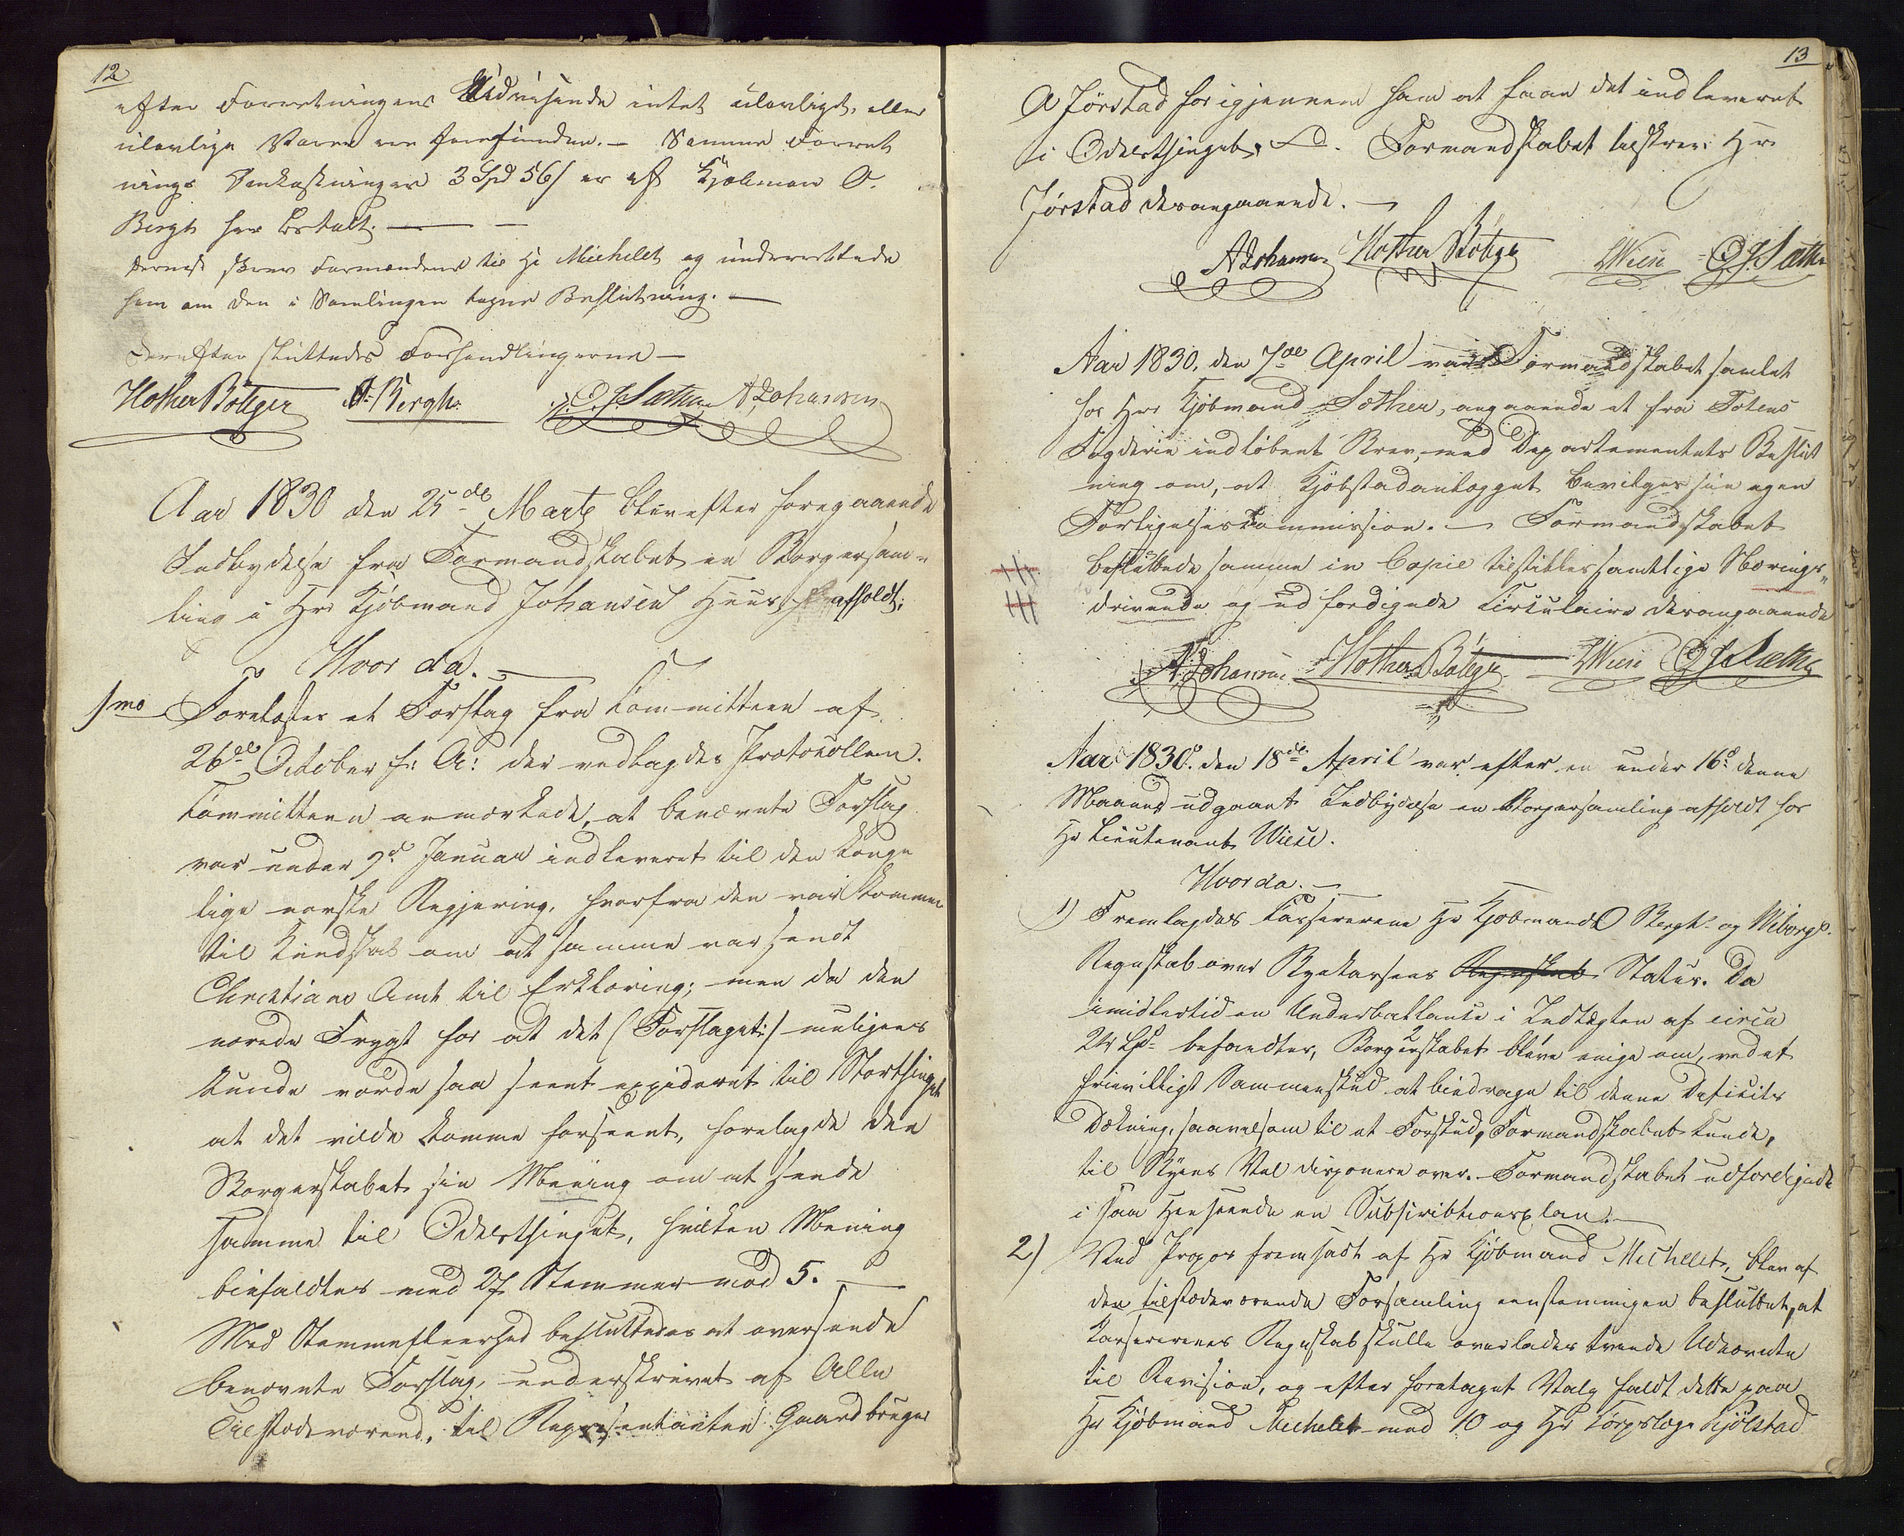 12
efter Forretningens Udvisende intet ulovligt, eller
ulovlige Varer var forefunden. — Samme Forret
nings Omkostninger 3 Spd 56 s er af Kjøbmand O.
Bergh her betalt. —
dernest skrev Formændene til Hr Michelet og underrettede
ham om den i Samlingen tagne Beslutning. —
Derefter sluttedes Forhandlingerne —
Hother Bøtger O. Bergh. O J Sæther A Johansen
Aar 1830 den 25de Marts blev efter foregaaende
Indbydelse fra Formandskabet en Borgersam-
ling i Hr Kjøbmand Johansens Huus afholdt;
Hvor da. —
1mo Forelæstes et Forslag fra Committeen af
26de October f: A: der vedlagdes Protocollen.
Committeen anmærkede, at benævnte Forslag
var under 9de Januar indleveret til den Konge
lige norske Regjering, hvorfra den var kommen
til Kundskab om at samme var sendt
Christians Amt til Erklæring; men da den
nærede Frygt for at det (Forslaget:) muligens
kunde vorde saa seent expideret til Storthinget
at det vilde komme forseent, forelagde den
Borgerskabet sin Mening om at sende
samme til Odelsthinget, hvilken Mening
biefaldtes med 27 Stemmer mod 5. —
Med Stemmefleerhed besluttedes at oversende
benævnte Forslag, underskrivet af Alle
Tilstedeværend, til Repræsentanten Gaardbruger
13
A Jørstad for igjennem ham at faae det indleveret
i Odelsthinget. — Formandskabet tilskrev Hr
Jørstad desangaaende. —
A Johansen Hother Bøtger Wiese O J Sæther
Aar 1830, den 7de April var Formandskabet samlet
hos Hr Kjøbmand Sæther, angaaende et fra Totens
Fogderie indløbent Brev, med Departementets Beslut
ning om, at Kjøbstadanlægget bevilges sin egen
Forligelsescommission. — Formandskabet
besluttede samme in Copie tilstilles samtlige Nærings-
drivende og udfærdigede Circulaire desangaaende
A Johansen Hother Bøtger Wiese O J Sæther
Aar 1830. den 18de April var efter en under 16de denne
Maaned udgaaet Indbydelse en Borgersamling afholdt hos
Hr Lieutenant Wiese.
Hvor da. —
1) Fremlagdes Cassererene Hr Kjøbmænd O Bergh og Wiborgs
Regnskab over Byekassens Regnskab Status. Da
imidlertid en Underballance i Indtægten af circa
24 Spd befandtes, Borgerskabet bleve enige om, ved et
frievilligt Sammenskud at bidrage til denne Deficits
Dækning, saavelsom til et Forskud, Formandskabet kunde,
til Byens Vel disponere over. Formandskabet udfærdigede
i saa Henseende en Subscribtionsplan. —
2) Ved Propos fremsadt af Hr Kjøbmand Michelet, blev af
den tilstedeværende Forsamling eenstemmigen besluttet, at
Cassererenes Regnskab skulle overlades tvende Udnævnte
til Revision, og efter foretaget Valg faldt dette paa
Hr Kjøbmand Michelet med 10 og Hr Corpslæge Kjølstad